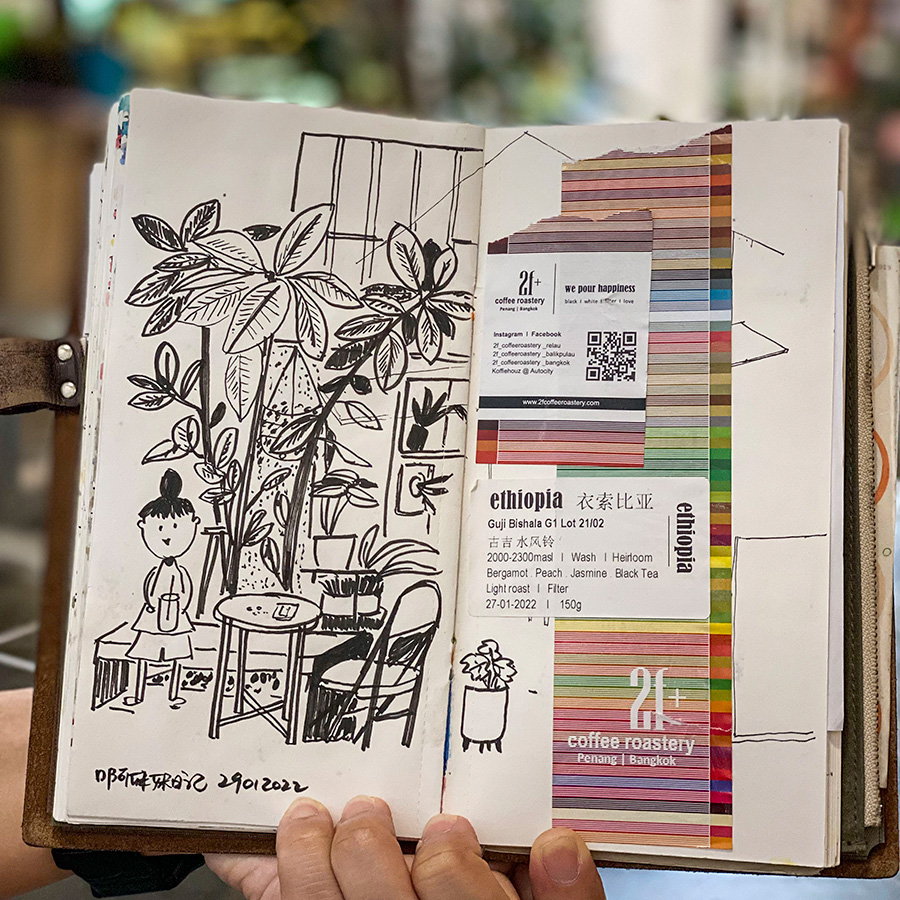 妹妹日记 29012022
2f+
coffee roastery
Penang | Bangkok
we pour happiness
black | white | filter | love
Instagram | Facebook
2f_coffeeroastery _relau
2f_coffeeroastery _balikpulau
2f_coffeeroastery _bangkok
Koffiehouz @ Autocity
www.2fcoffeeroastery.com
ethiopia 衣索比亚
Guji Bishala G1 Lot 21/02
古吉 水风铃
2000-2300masl | Wash | Heirloom
Bergamot . Peach . Jasmine . Black Tea
Light roast | Filter
27-01-2022 | 150g
ethiopia
2f+
coffee roastery
Penang | Bangkok